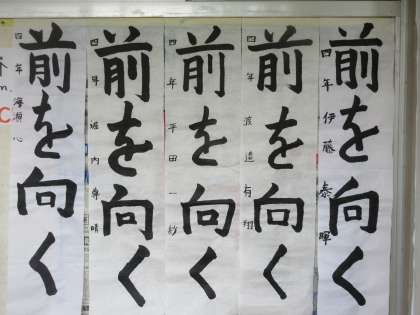 前を向く
四年 伊藤 泰暉
前を向く
四年 渡邉 有翔
前を向く
四年 平田 一紗
前を向く
四年 内
前を向く
四年 心
C